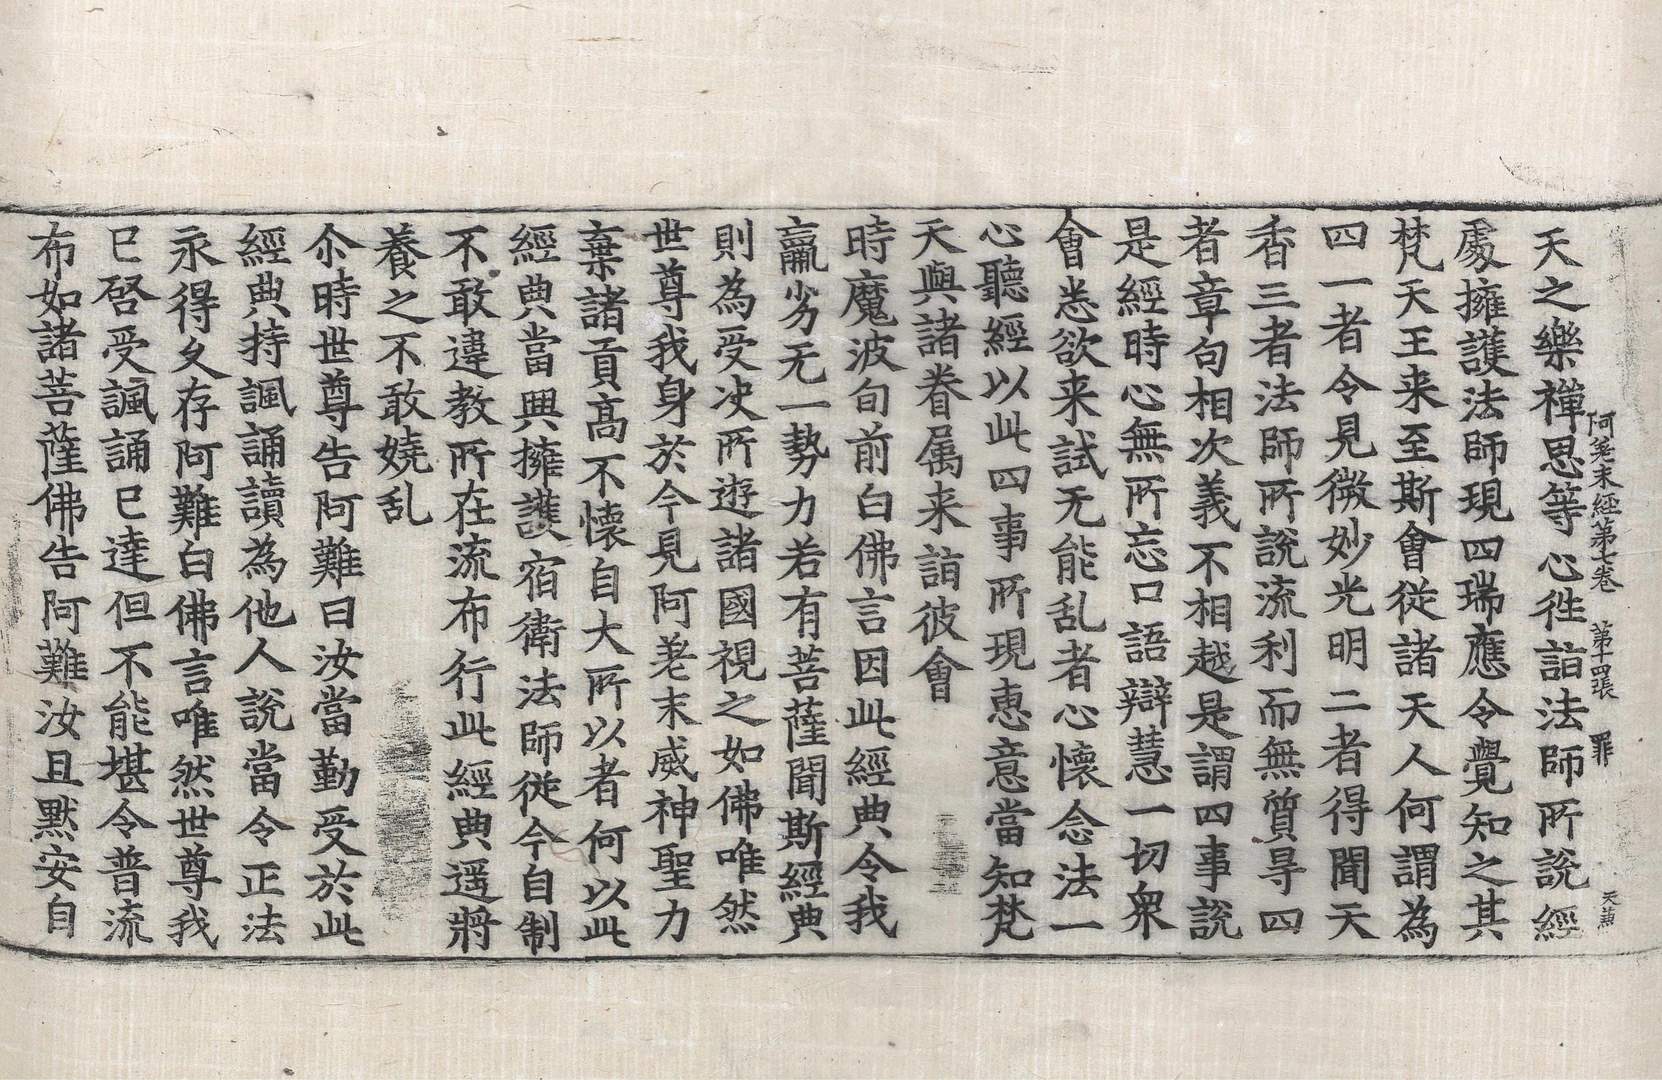 阿差末經第七卷　第十四張　罪　天兼
天之樂禪思等心徃詣法師所說經
處擁護法師現四瑞應令覺知之其
梵天王来至斯會從諸天人何謂為
四一者令見微妙光明二者得聞天
香三者法師所說流利而無質㝵四
者章句相次義不相越是謂四事說
是經時心無所忘口語辯慧一切衆
會悉欲来試无能乱者心懷念法一
心聽經以此四事所現恵意當知梵
天與諸眷属来詣彼會
時魔波旬前白佛言因此經典令我
羸劣无一勢力若有菩薩聞斯經典
則為受决所遊諸國視之如佛唯然
世尊我身於今見阿差末威神聖力
棄諸貢高不懷自大所以者何以此
經典當興擁護宿衛法師從今自制
不敢違教所在流布行此經典遥將
養之不敢嬈乱
尒時世尊告阿難曰汝當勤受於此
經典持諷誦讀為他人說當令正法
永得久存阿難白佛言唯然世尊我
已啓受諷誦已達但不能堪令普流
布如諸菩薩佛告阿難汝且默安自